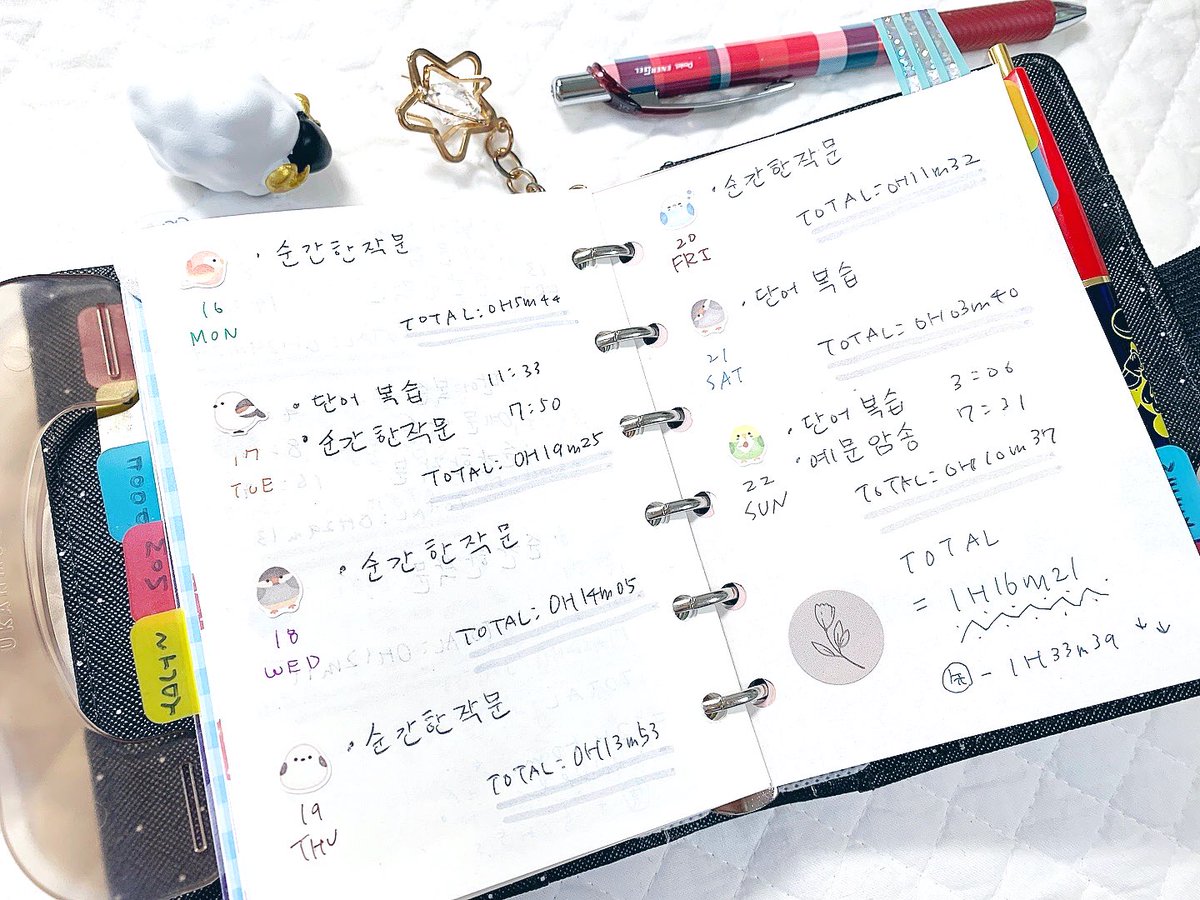 · 순간한작문
16
MON
TOTAL: 0H5m44
· 단어 복습 11:33
· 순간한작문 7:50
17
TUE
TOTAL: 0H19m25
· 순간한작문
18
WED
TOTAL: 0H14m05
· 순간한작문
19
THU
TOTAL: 0H13m53
· 순간한작문
20
FRI
TOTAL: 0H11m32
· 단어 복습
21
SAT
TOTAL: 0H03m40
· 단어 복습 3:06
· 예문암송 7:31
22
SUN
TOTAL: 0H10m37
TOTAL
= 1H16m21
- 1H33m39 ↓↓
Pentel ENERGEL
TODO